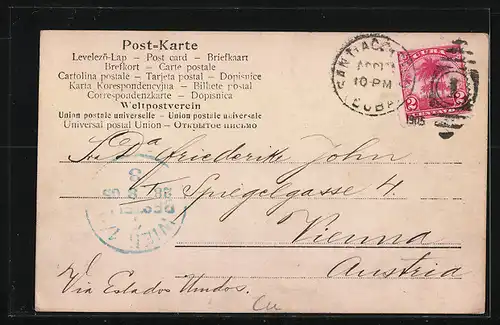 Post-Karte
Levelező-Lap — Post card — Briefkaart
Brefkort — Carte postale
Cartolina postale — Tarjeta postal — Dopisnice
Karta Korespondencyjna — Billete postale
Correspondenzkarte — Dopisnica
Weltpostverein
Union postale universelle — Union postale universelle
Universal postal Union — Открытое письмо
SANTIAGO
10-PM
CUBA
1905
CUBA
2 2
Sra Da Friederike John
Spiegelgasse 4
Vienna
Austria
Via Estados Unidos.
Cu
WIEN
BESTELLT
3